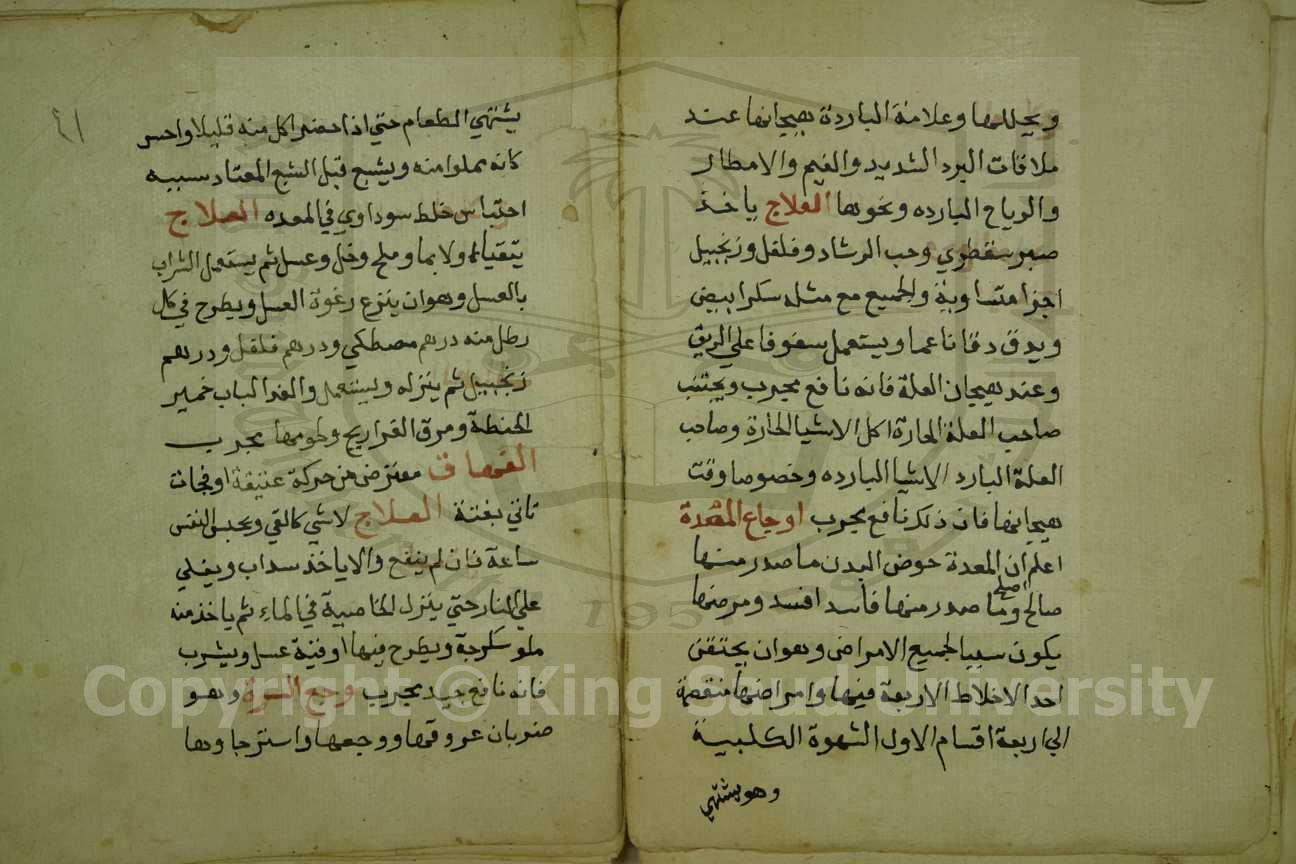 ويحللها وعلامة الباردة هيجانها عند
ملاقات البرد الشديد والغيم والامطار
والرياح البارده ونحوها العلاج ياخذ
صبر سقطري وحب الرشاد وفلفل وزنجبيل
اجزا متساوية والجميع مع مثله سكرا بيض
ويدق دقا ناعما ويستعمل سفوفا علي الريق
وعند هيجان العلة فانه نافع مجرب ويجتنب
صاحب العلة الحارة اكل الاشيا الحارة وصاحب
العلة البارد الاشيا البارده وخصوصا وقت
هيجانها فان ذلك نافع مجرب اوجاع المعدة
اعلم ان المعدة حوض البدن ما صدر منها
صالح اصلح وما صدر منها فاسد افسد ومرضها
يكون سببا لجميع الامراض وهو ان يحتقن
احد الاخلاط الاربعة فيها وامراضها منقصمة
الي اربعة اقسام الاول الشهوة الكلبية
وهو يشتهي
٤١
يشتهي الطعام حتي اذا حضر اكل منه قليلا واحس
كانه مملوا منه ويشبع قبل الشبع المعتاد سببه
احتباس خلط سوداوي في المعده العلاج
يتقيا اولا بما وملح وخل وعسل ثم يستعمل الشراب
بالعسل وهو ان ينزع رغوة العسل ويطرح في كل
رطل منه درهم مصطكي ودرهم فلفل ودرهم
زنجبيل ثم ينزله ويستعمل والغدا لباب خمير
الحنطة ومرق الفراريج ولحومها مجرب
الفهاق معترض من حركة عنيفة او فجات
تاتي بغتة العلاج لاشي كالقي ويحبس النفس
ساعة فان لم ينفع والا ياخذ سداب ويغلي
علي النار حتي ينزل الخاصية في الماء ثم ياخذ منه
ملو سكرجة ويطرح فيها اوقية عسل ويشرب
فانه نافع جيد مجرب وجع السرة وهو
ضربان عروقها ووجعها واسترخاوها
Copyright © King Saud University
1957